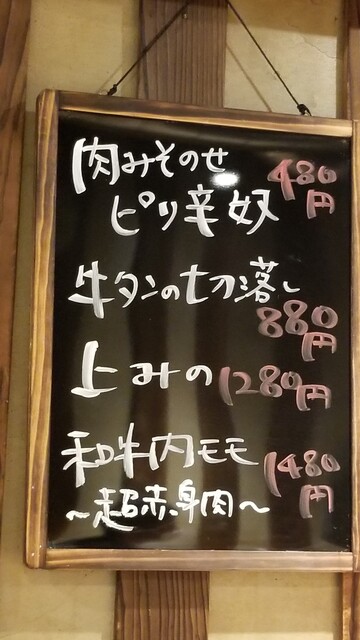 肉みそのせ 480円
ピリ辛奴
牛タンの切落し
880円
上みの 1280円
和牛内モモ 1480円
～超赤身肉～